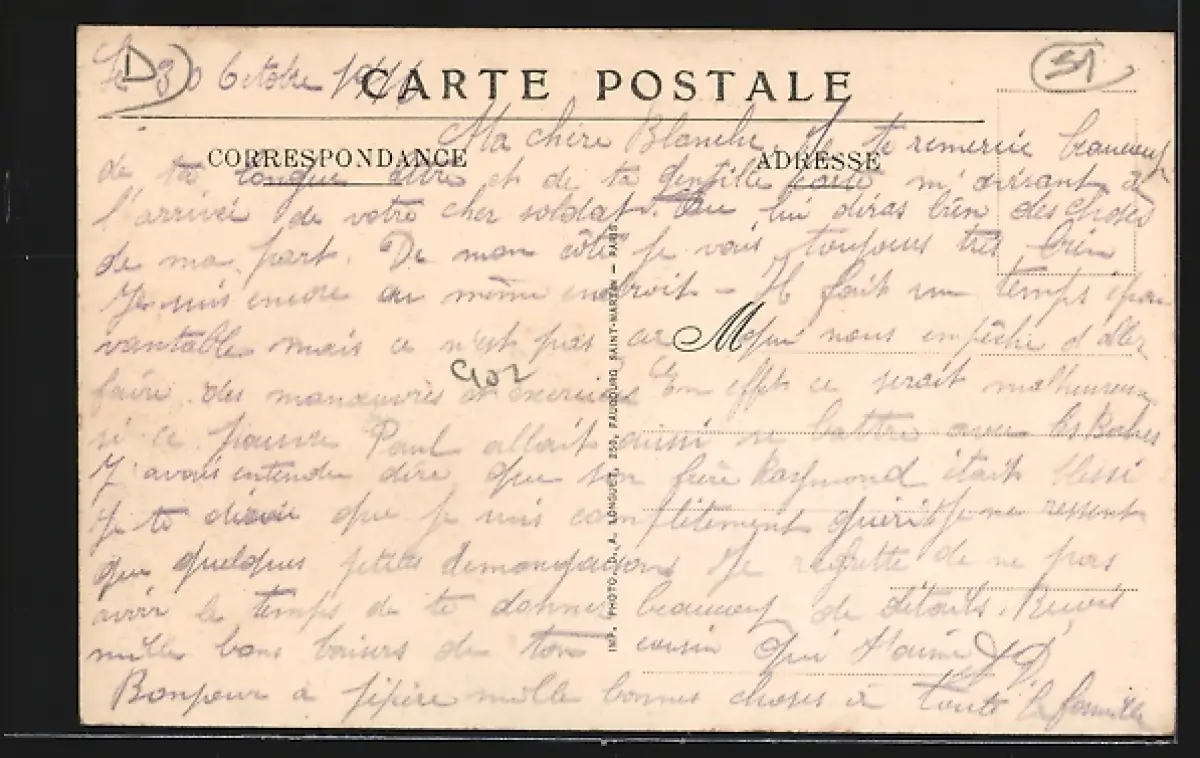 D
51
Le 30 Octobre
CARTE POSTALE
Ma chère Blanche. Je te remercie beaucoup
CORRESPONDANCE
ADRESSE
de ta longue lettre et de ta gentille carte m'avisant de
l'arrivée de votre cher soldat. Tu lui diras bien des choses
de ma part. De mon côté je vais toujours très bien
Je suis encore au même endroit - Il fait un temps épou
vantable mais ce n'est pas ce
M
qui nous empêche d'aller
902
faire des manœuvres et exercices En effet ce serait malheureux
si ce pauvre Paul allait aussi se battre avec les Boches
J'avais entendu dire que son frère Raymond était blessé
Je te dirai que je suis complètement guéri Je ne ressens
que quelques petites démangeaisons Je regrette de ne pas
avoir le temps de te donner beaucoup de détails. Reçois
mille bons baisers de ton cousin qui t'aime
Bonjour à pépère mille bonnes choses à toute la famille
IMP. PHOTO. D. A. LONGUET, 250, FAUBOURG SAINT-MARTIN — PARIS